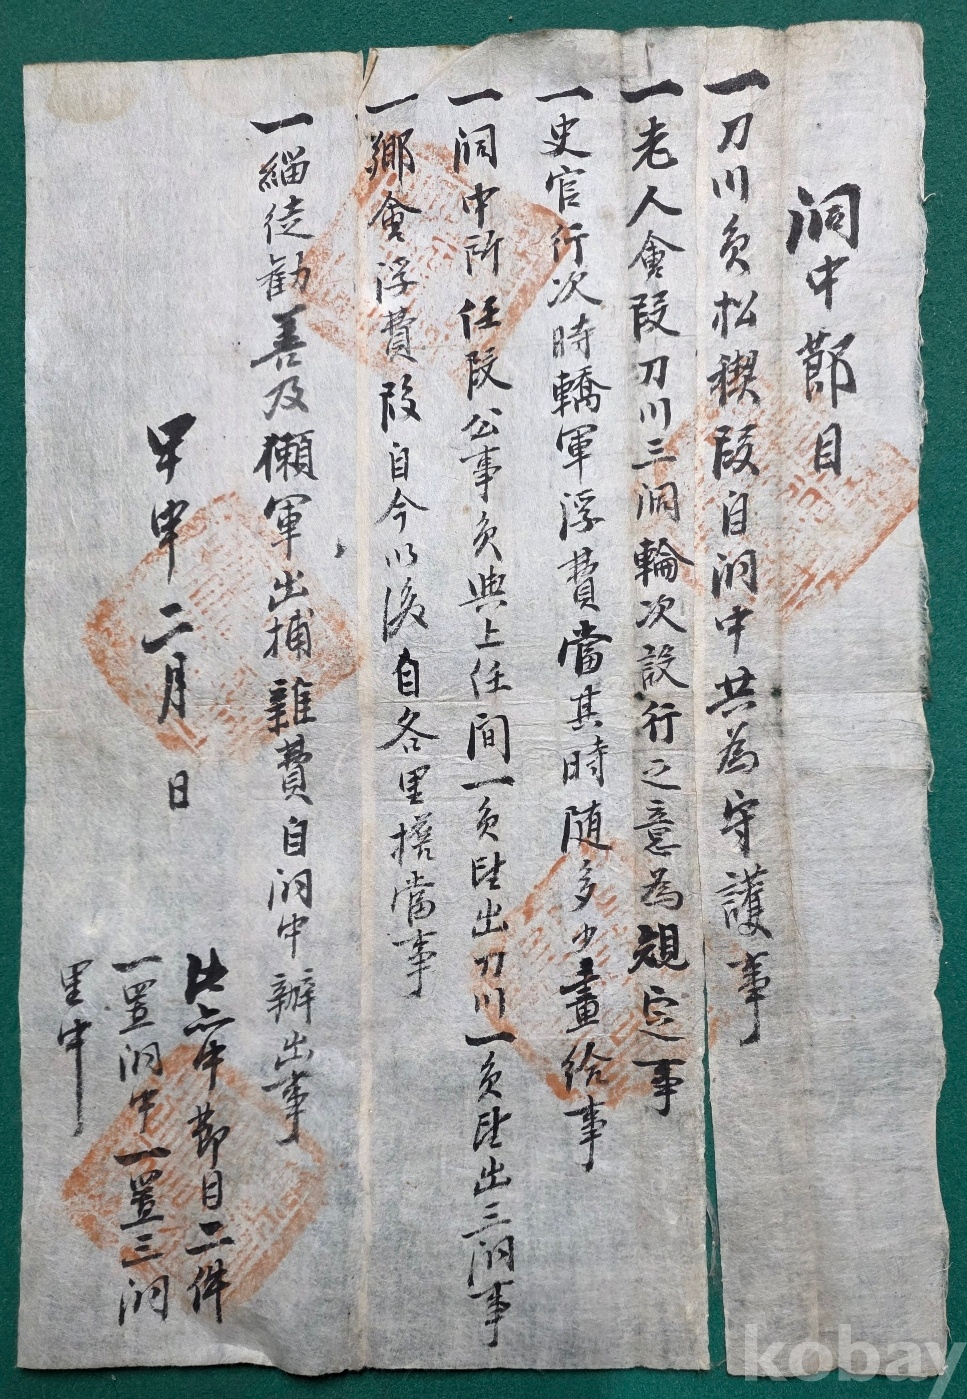 洞中節目
一刀川負松稧段自洞中共為守護事
一老人會段刀川三洞輪次設行之意為規定事
一史官行次時轎軍浮費當其時随多少畫給事
一洞中所任段公事負與上任間一負望出刀川一負望出三洞事
一鄉會浮費段自今以後自各里擔當事
一緇徒勸善及獺軍出捕雜費自洞中辦出事
甲申二月 日
此亦中節目二件
一置洞中一置三洞
里中
kobay